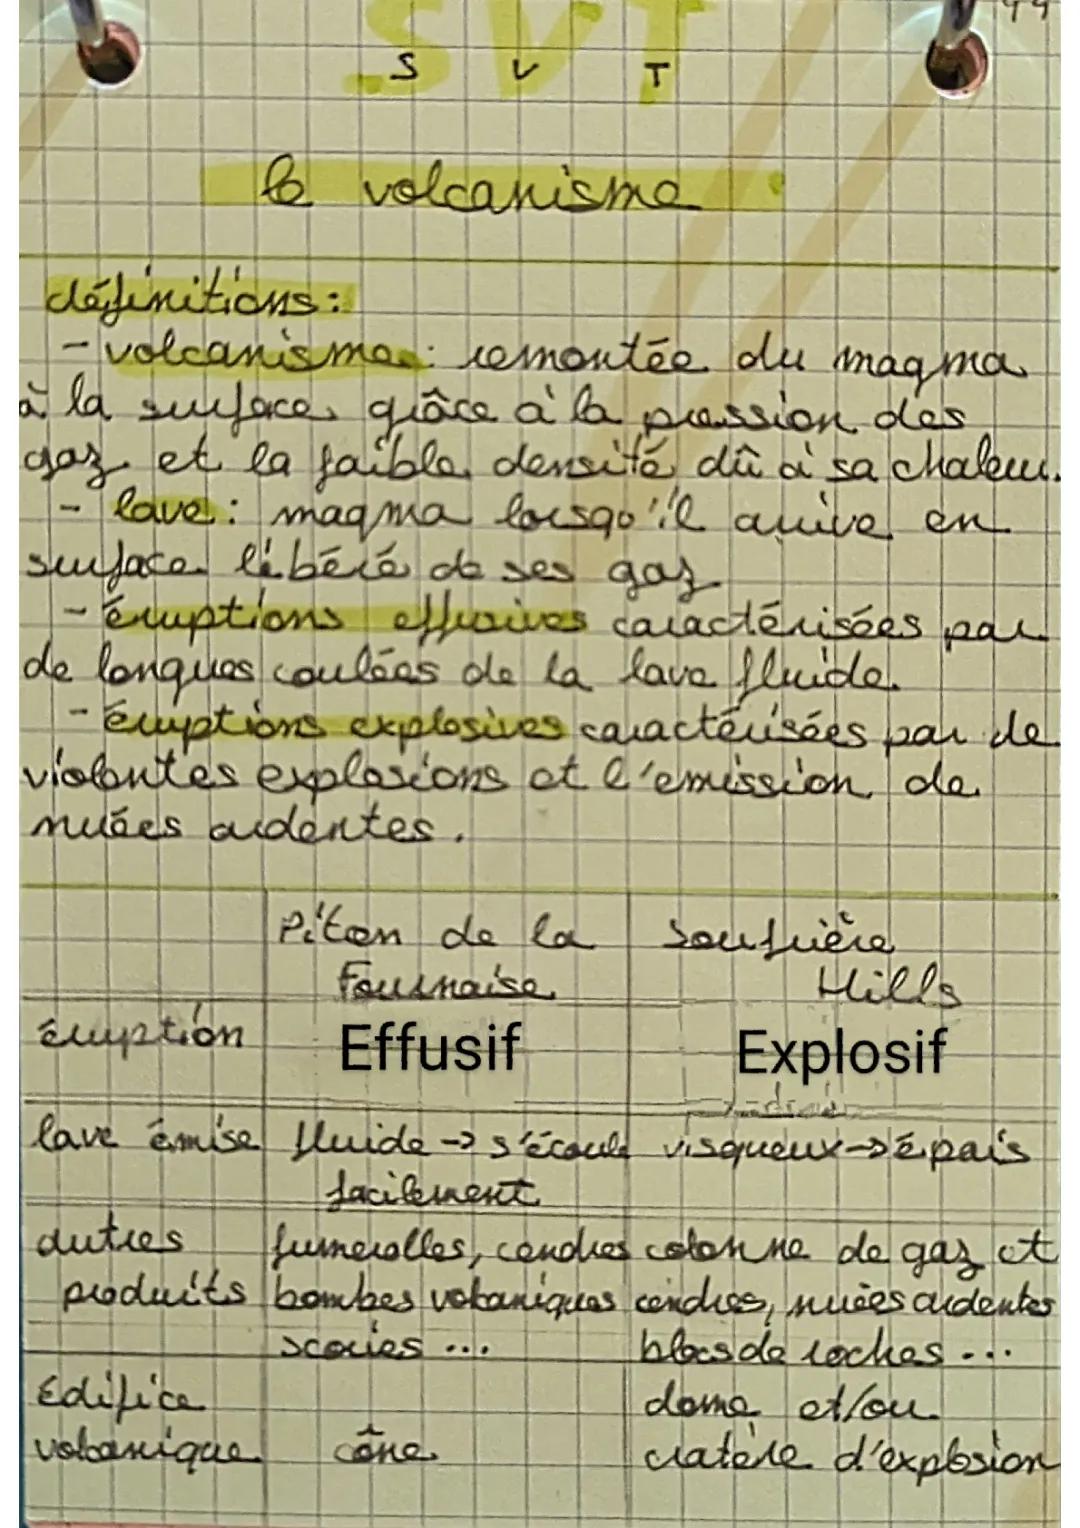 SVT
S V T
le volcanisme
définitions :
- volcanisme : remontée du magma
à la surface grâce à la pression des
gaz et la faible densité dû à sa chaleur.
- lave : magma lorsqu'il arrive en
surface libéré de ses gaz
- éruptions effusives caractérisées par
de longues coulées de la lave fluide.
- éruptions explosives caractérisées par de
violentes explosions et l'émission de
nuées ardentes.
Piton de la Fournaise
Soufrière Hills
éruption Effusif Explosif
lave émise fluide -> s'écoule visqueux -> épais
facilement
autres fumerolles, cendres colonne de gaz et
produits bombes volcaniques cendres, nuées ardentes
scories ... blocs de roches ...
Edifice dome et/ou
volcanique cône cratère d'explosion